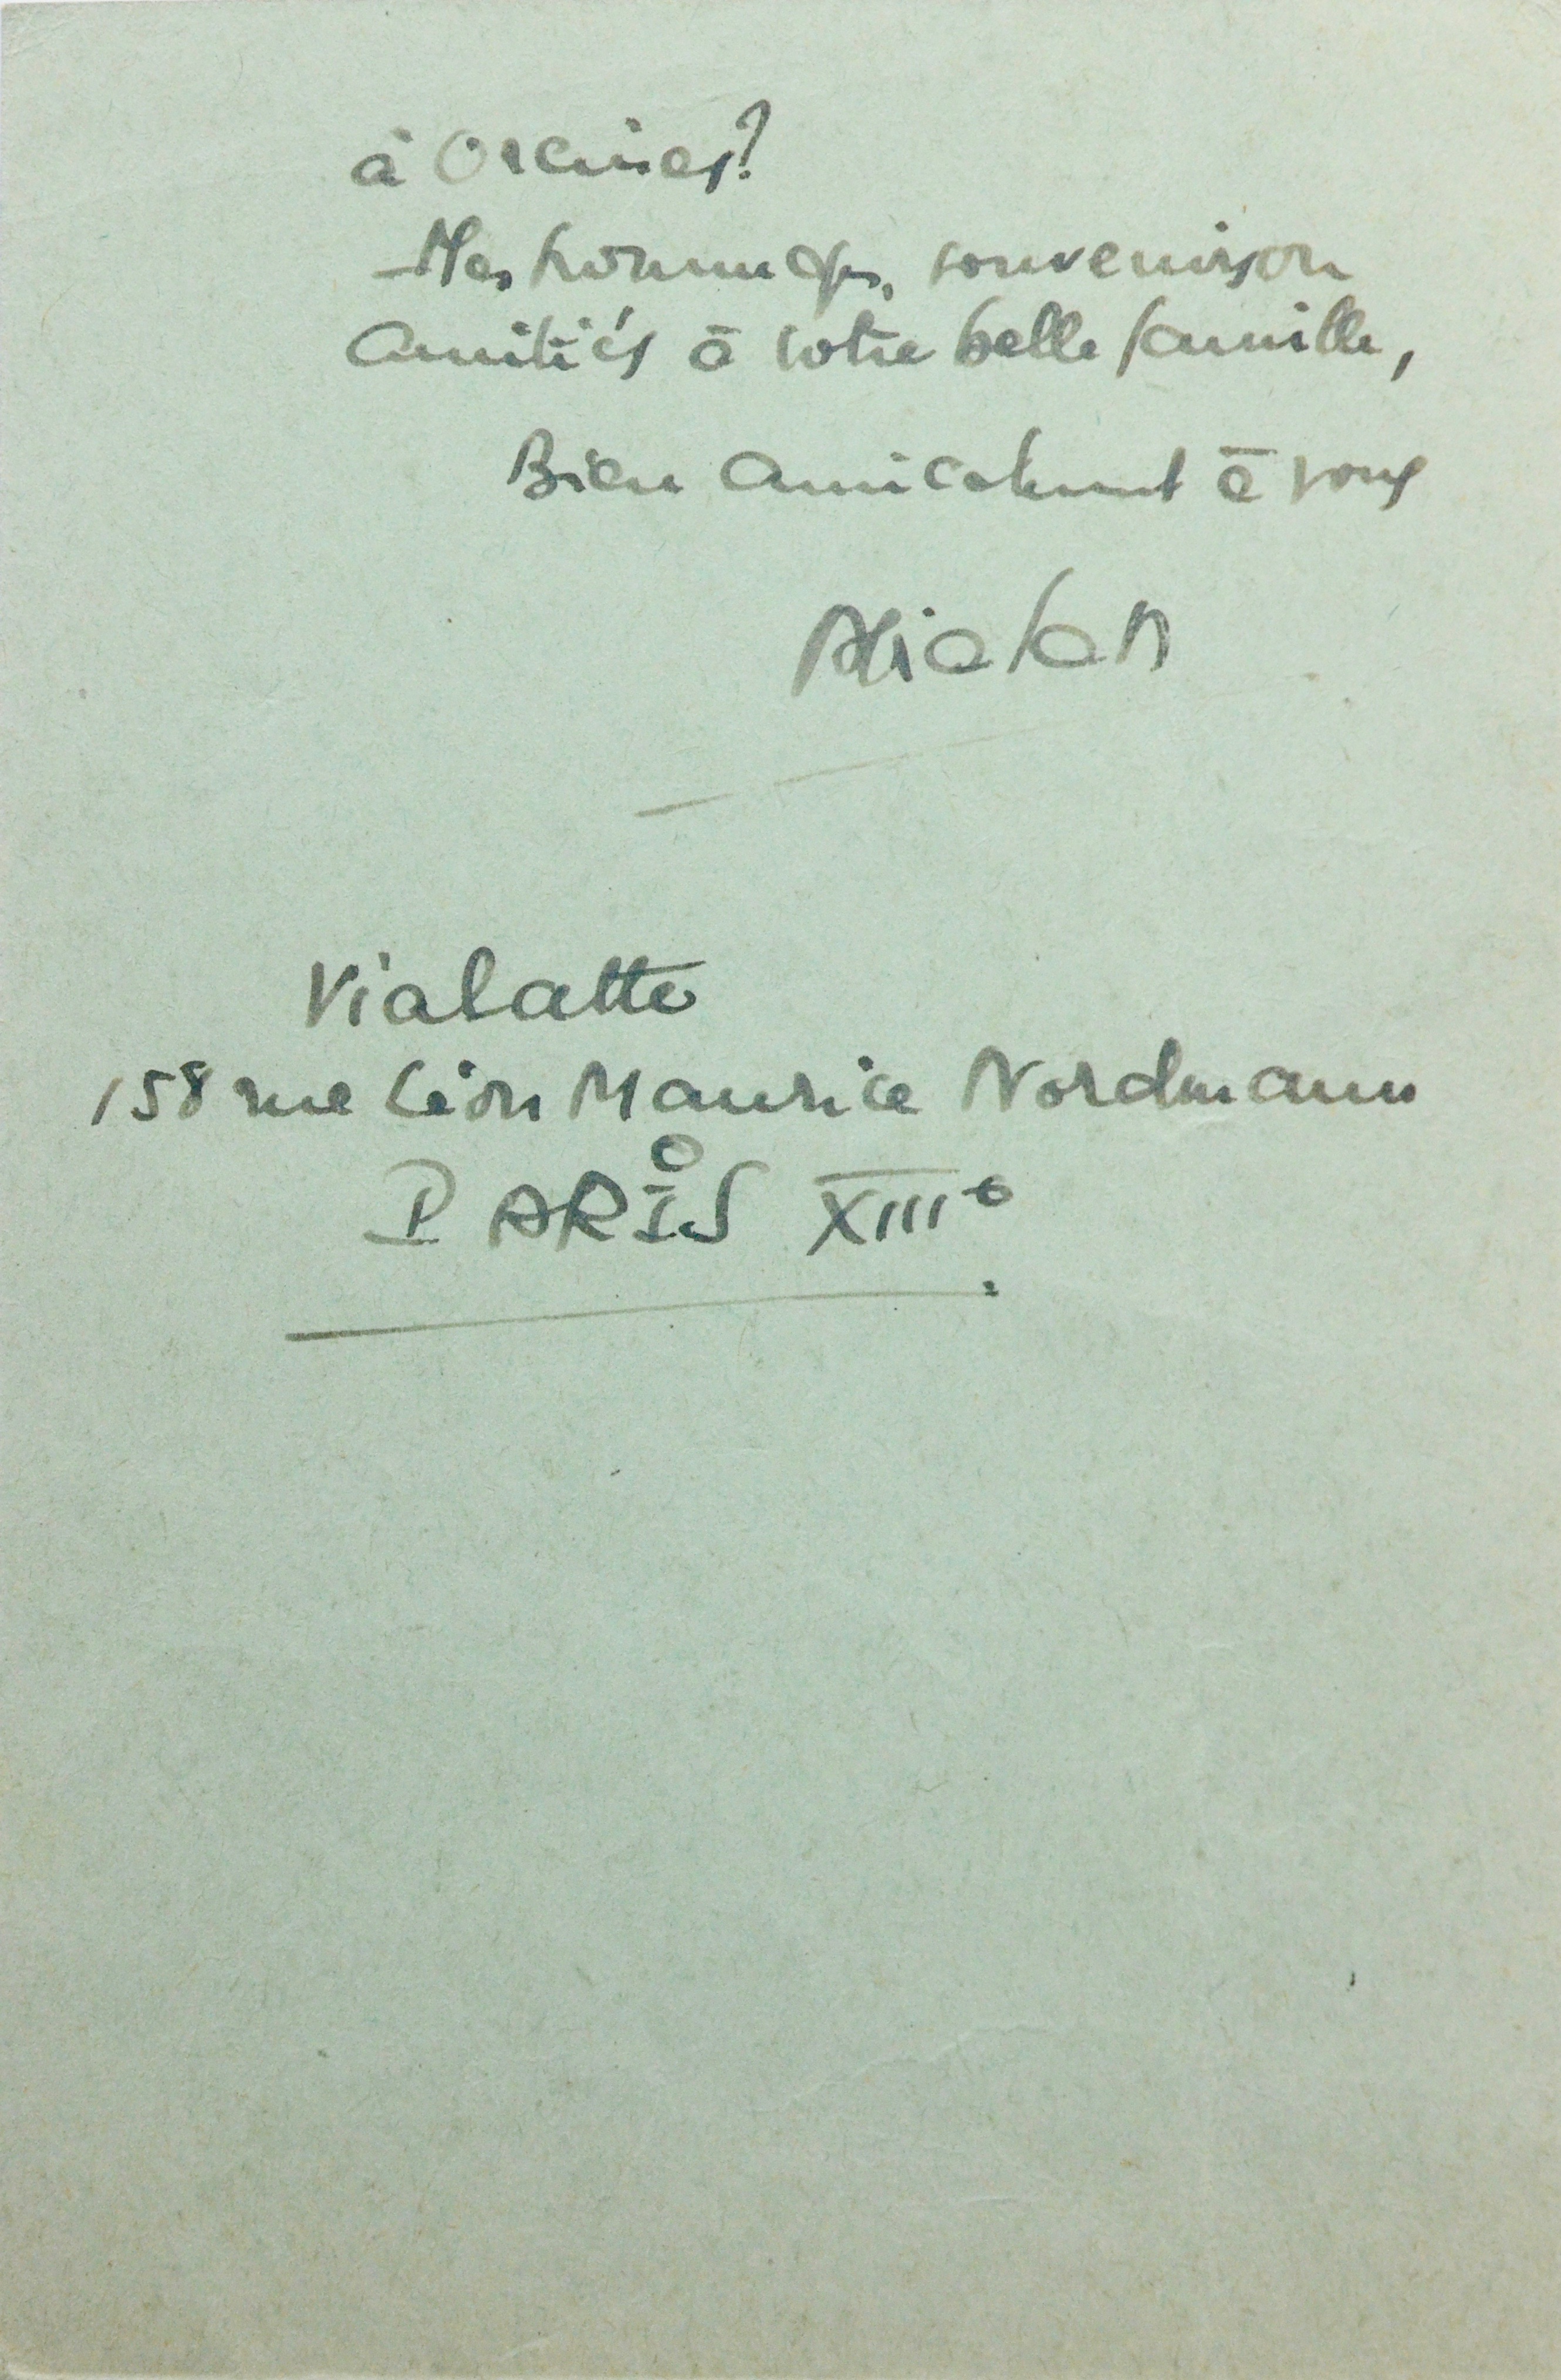 à Orcines?
Mes hommages, souvenirs ou
Amitiés à votre belle famille,
Bien amicalement à vous
Vialatte
158 rue Léon Maurice Nordmann
PARIS XIIIe